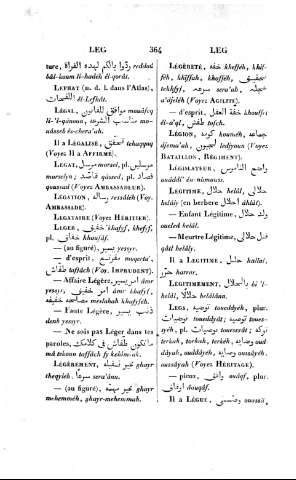 LEG 364 LEG
ture, ردوا بالكم لهذه القراة reddoû
bâl-koum li-hadéh él-qorât.
LEFRAT (m. d. l. dans l'Atlas),
él-Lefhât.
LÉGAL, موافق للقانون mouâfeq
li-'l-qânoun, مناسب الشرعه mo-
nâsseb éch-chera'ah.
Il a LÉGALISÉ, تحقق tehaqqaq
(Voyez Il a AFFIRMÉ).
LÉGAT, مرسول morsel, pl. مرسولين
morselyn; قاصد qâssed, pl. قصاد
qoussad (Voyez AMBASSADEUR).
LÉGATION, رسالة ressâléh (Voy.
AMBASSADE).
LÉGATAIRE (Voyez HÉRITIER).
LÉGER, خفيف khafyf, khefyf,
pl. خفاف khoufâf.
— (au figuré), يسير yessyr.
— d'esprit,
taffâch (V. IMPRUDENT).
— Affaire Légère, امر يسير âmr
yessyr, امر خفيف âmr khafyf,
مصلحة خفيفه meslahah khafyféh
— Faute Légère, ذنب يسير
denb yessyr.
— Ne sois pas Léger dans tes
paroles, ما تكون طفاش في كلامك
mâ tekoun taffâch fy kelâm-ak.
LÉGÈREMENT, غير ثقيله ghayr
theqyléh, سرعا sera'ânn.
— (au figuré), غير مهمه ghayr
mehemméh, ghayr-mehemmah.
LÉGÈRETÉ, خفه kheffêh, khif-
féh, khiffah, khaffêh, تخفيف
tekhfyf, سرعه sera'h, عجله
a'djeléh (Voyez AGILITÉ).
— d'esprit, خفة العقل khouffet
él-a'qel, طفش tefch.
LÉGION, كونه kounéh, جماعه
djema'ah, لجيون ledjyoun (Voyez
BATAILLON, RÉGIMENT).
LÉGISLATEUR, واضع الناموس
ouâddi' én-nâmous.
LÉGITIME, حلال helâl, حلالي
halâly (en berbère حلال âhlâl).
— Enfant Légitime, ولد حلال
oueled helâl.
— Meurtre Légitime, قتل حلال
qâtl helâly.
Il a LÉGITIMÉ, حلل hallal,
حرر harrer.
LÉGITIMEMENT, بالحلال bi'l-
helâl, حلالا helâlânn.
LEGS, توصيه touedyéh, plur.
توصيات touedyât; توصيه toues-
syéh, pl. توصيات touessyât; تركه
terkah, terkah, terkéh, وصايه oud-
dâyah, ouddâyéh, وصايه oussâyéh,
oussâyah (Voyez HÉRITAGE).
— pieux, واقف ouâqf, plur.
اوقاف âouqâf.
Il a LÉGUÉ, وصى oussä,